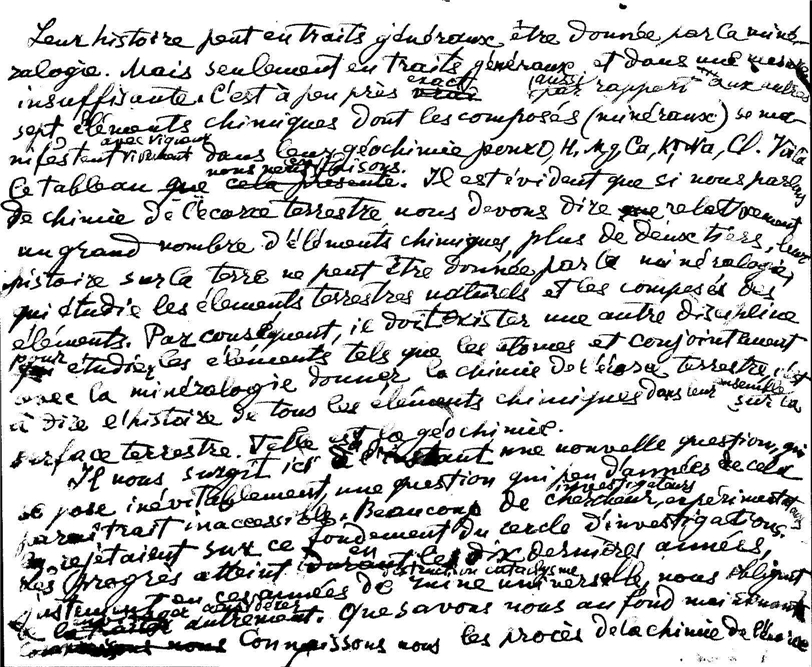 Leur histoire peut en traits généraux être donnée par la miné-
ralogie. Mais seulement en traits généraux et dans une mesure
insuffisante. C'est à peu près exact aussi par rapport aux autres
sept éléments chimiques dont les composés (minéraux) se ma-
nifestent avec vigueur dans leur géochimie pour O, H, Mg, Ca, K, Na, Cl. Voilà
ce tableau que nous
De chimie de l'écorce terrestre nous devons dire que relativement
un grand nombre d'éléments chimiques, plus de deux tiers, leur
histoire sur la terre ne peut être donnée par la minéralogie,
qui étudie les éléments terrestres naturels et les composés des
éléments. Par conséquent, il doit exister une autre discipline
pour étudier les éléments tels que les atomes et conjointement
avec la minéralogie donner la chimie de l'écorce terrestre, c'est
à dire l'histoire de tous les éléments chimiques dans leur ensemble sur la
surface terrestre. Telle est la géochimie.
Il nous surgit ici une nouvelle question, qui
se pose inévitablement, une question qui peu d'années de cela
paraitrait inaccessible. Beaucoup de chercheur, investigateurs
rejetaient sur ce fondement du cercle d'investigations.
Les progrès atteint en dix dernières années,
en ces années de ruine universelle, destruction cataclysme nous obligent
considérer autrement. Que savons nous au fond maintenant
Connaissons nous les procès de la chimie de l'écorce